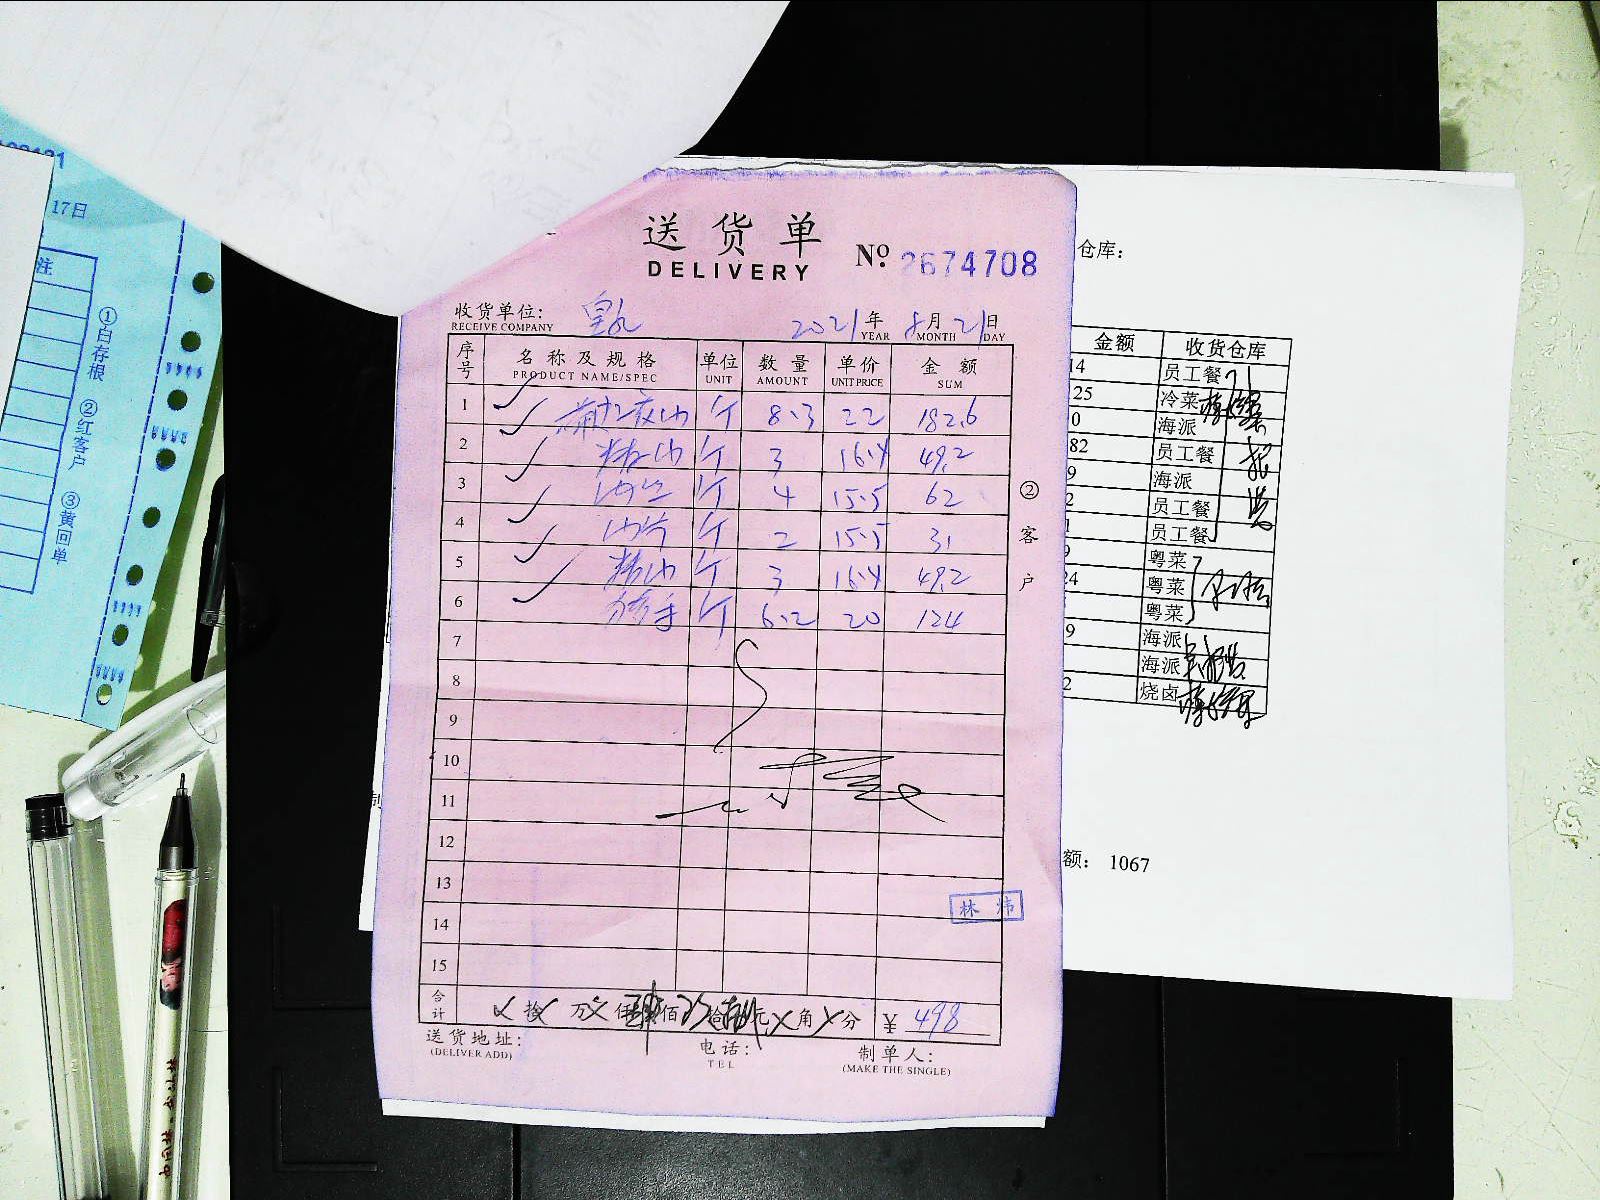 17日
注
①白存根 ②红客户 ③黄回单
送货单
DELIVERY
№ 2674708
收货单位:
RECEIVE COMPANY
2021年 8月 21日
YEAR MONTH DAY
序号 名称及规格 单位 数量 单价 金额
PRODUCT NAME/SPEC UNIT AMOUNT UNIT PRICE SUM
1 斤 8.3 22 182.6
2 精肉 斤 3 16.4 49.2
3 肉丝 斤 4 15.5 62
4 肉片 斤 2 15.5 31
5 精肉 斤 3 16.4 49.2
6 斤 6.2 20 124
7
8
9
10
11
12
13
14
15
②客户
林炜
合计 拾 万 仟 佰 拾 元 角 分 ¥ 498
送货地址: 电话: 制单人:
(DELIVER ADD) TEL (MAKE THE SINGLE)
仓库:
金额 收货仓库
14 员工餐
25 冷菜
0 海派
82 员工餐
9 海派
2 员工餐
1 员工餐
9 粤菜
24 粤菜
粤菜
9 海派
海派
2 烧卤
额: 1067